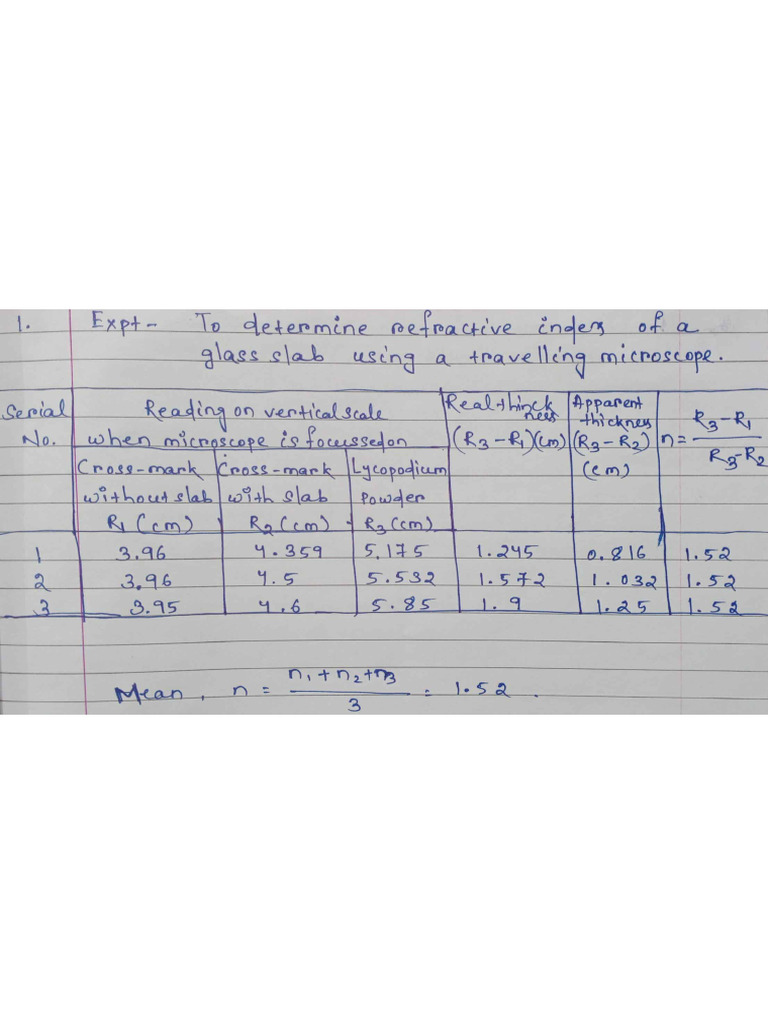 1. Expt- To determine refractive index of a
glass slab using a travelling microscope.
Serial No. Reading on vertical scale when microscope is focussed on Real thinckness (R3-R1)(cm) Apparent thickness (R3-R2) (cm) n= R3-R1 / R3-R2
Cross-mark without slab R1 (cm) Cross-mark with slab R2 (cm) Lycopodium Powder R3 (cm)
1 3.96 4.359 5.175 1.245 0.816 1.52
2 3.96 4.5 5.532 1.572 1.032 1.52
3 3.95 4.6 5.85 1.9 1.25 1.52
Mean, n = n1+n2+n3 / 3 = 1.52.